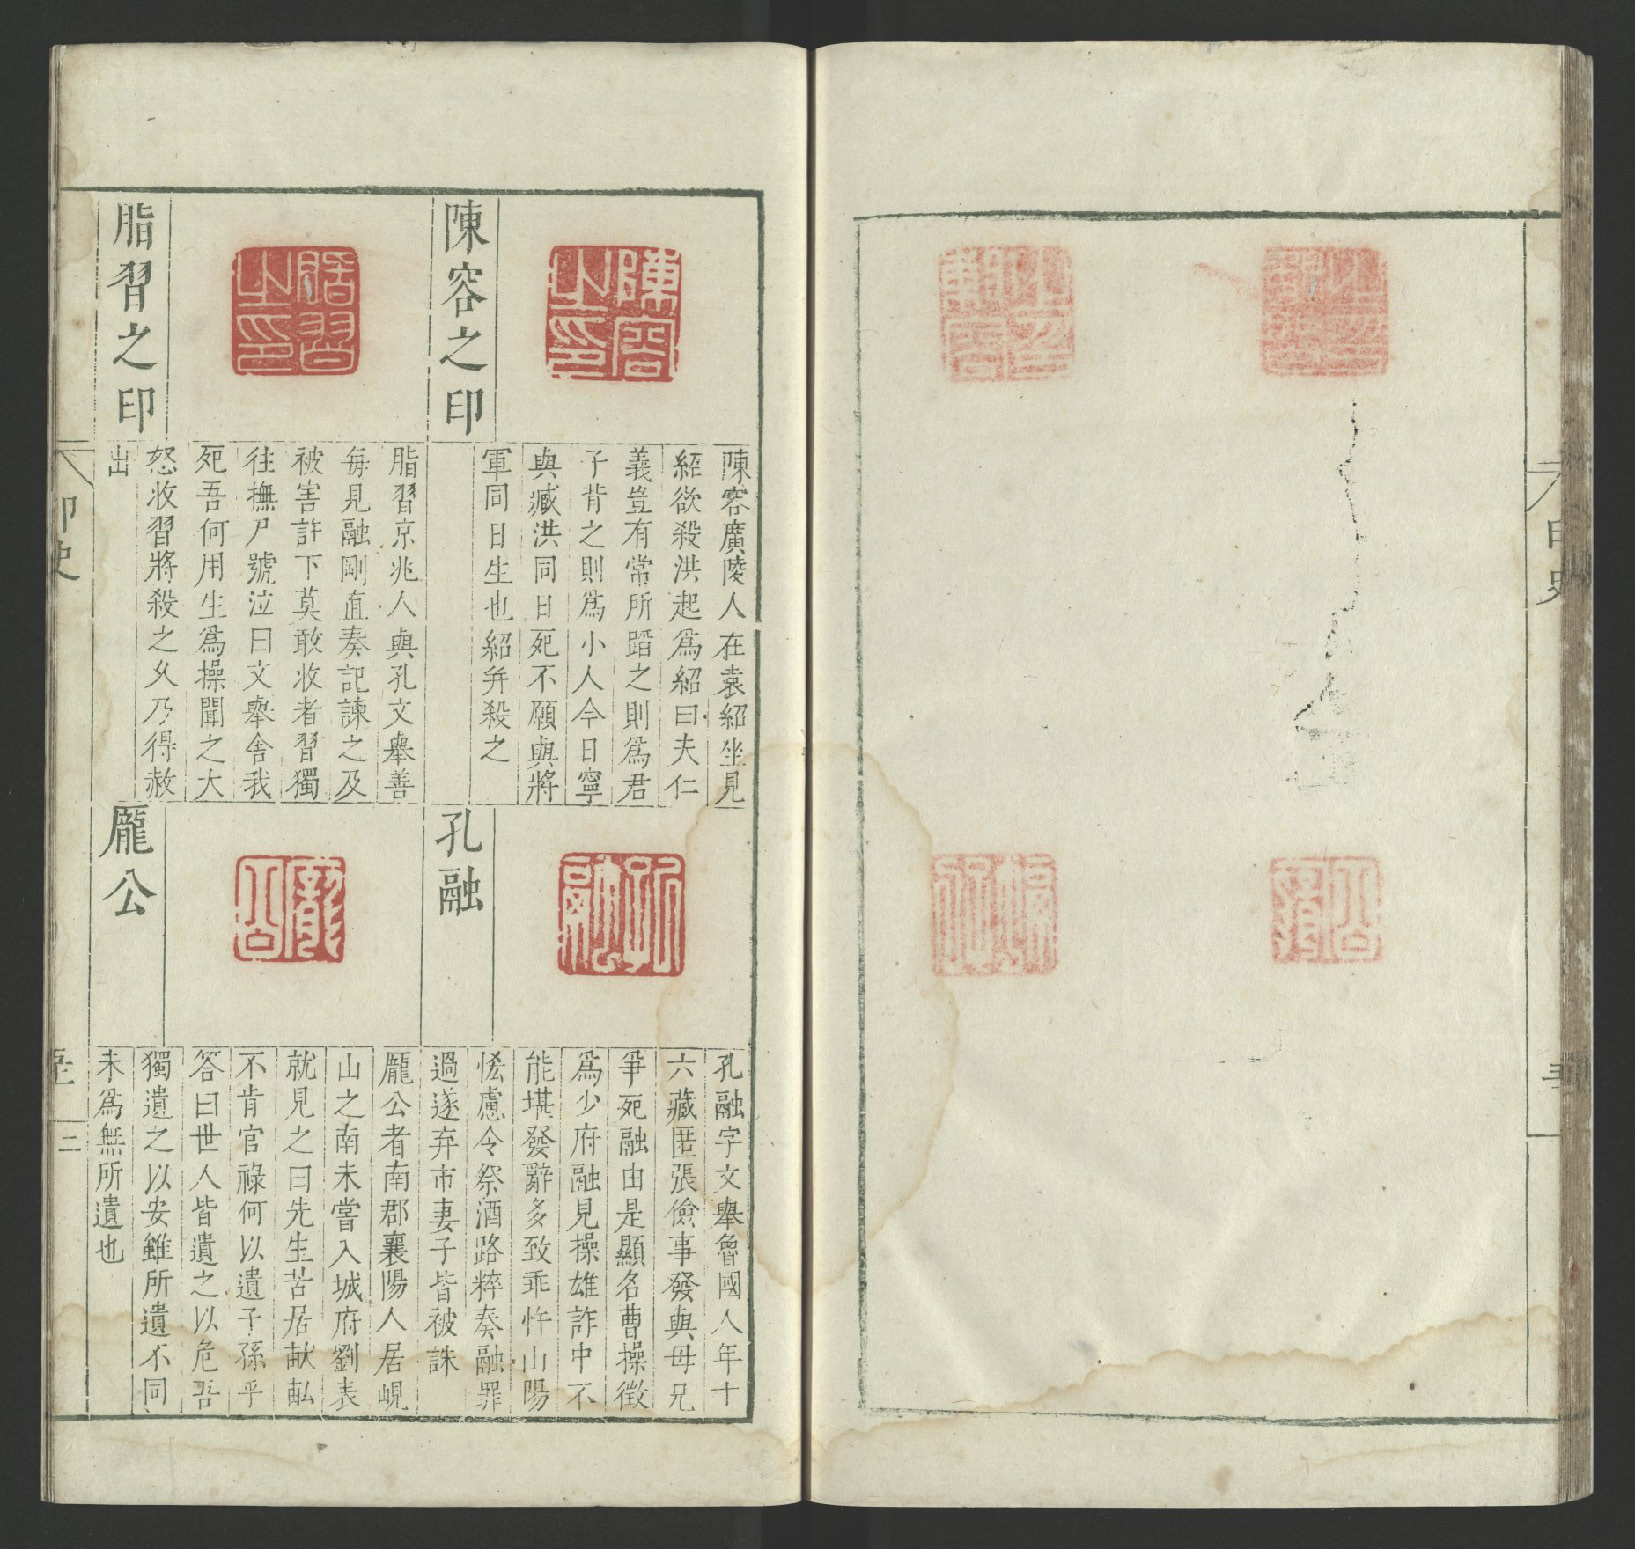 陳容之印
陳容廣陵人在袁紹坐見
紹欲殺洪起為紹曰夫仁
義豈有常所蹈之則為君
子背之則為小人今日寧
與臧洪同日死不願與將
軍同日生也紹并殺之
脂習之印
脂習京兆人與孔文舉善
每見融剛直奏記諫之及
被害許下莫敢收者習獨
往撫尸號泣曰文舉舍我
死吾何用生為操聞之大
怒收習將殺之久乃得赦
出
孔融
孔融字文舉魯國人年十
六藏匿張儉事發與母兄
爭死融由是顯名曹操徵
為少府融見操雄詐中不
能堪發辭多致乖忤山陽
郗慮令祭酒路粹奏融罪
過遂弃市妻子皆被誅
龐公
龐公者南郡襄陽人居峴
山之南未嘗入城府劉表
就見之曰先生苦居畎畝
不肯官祿何以遺子孫乎
答曰世人皆遺之以危吾
獨遺之以安雖所遺不同
未為無所遺也
印史